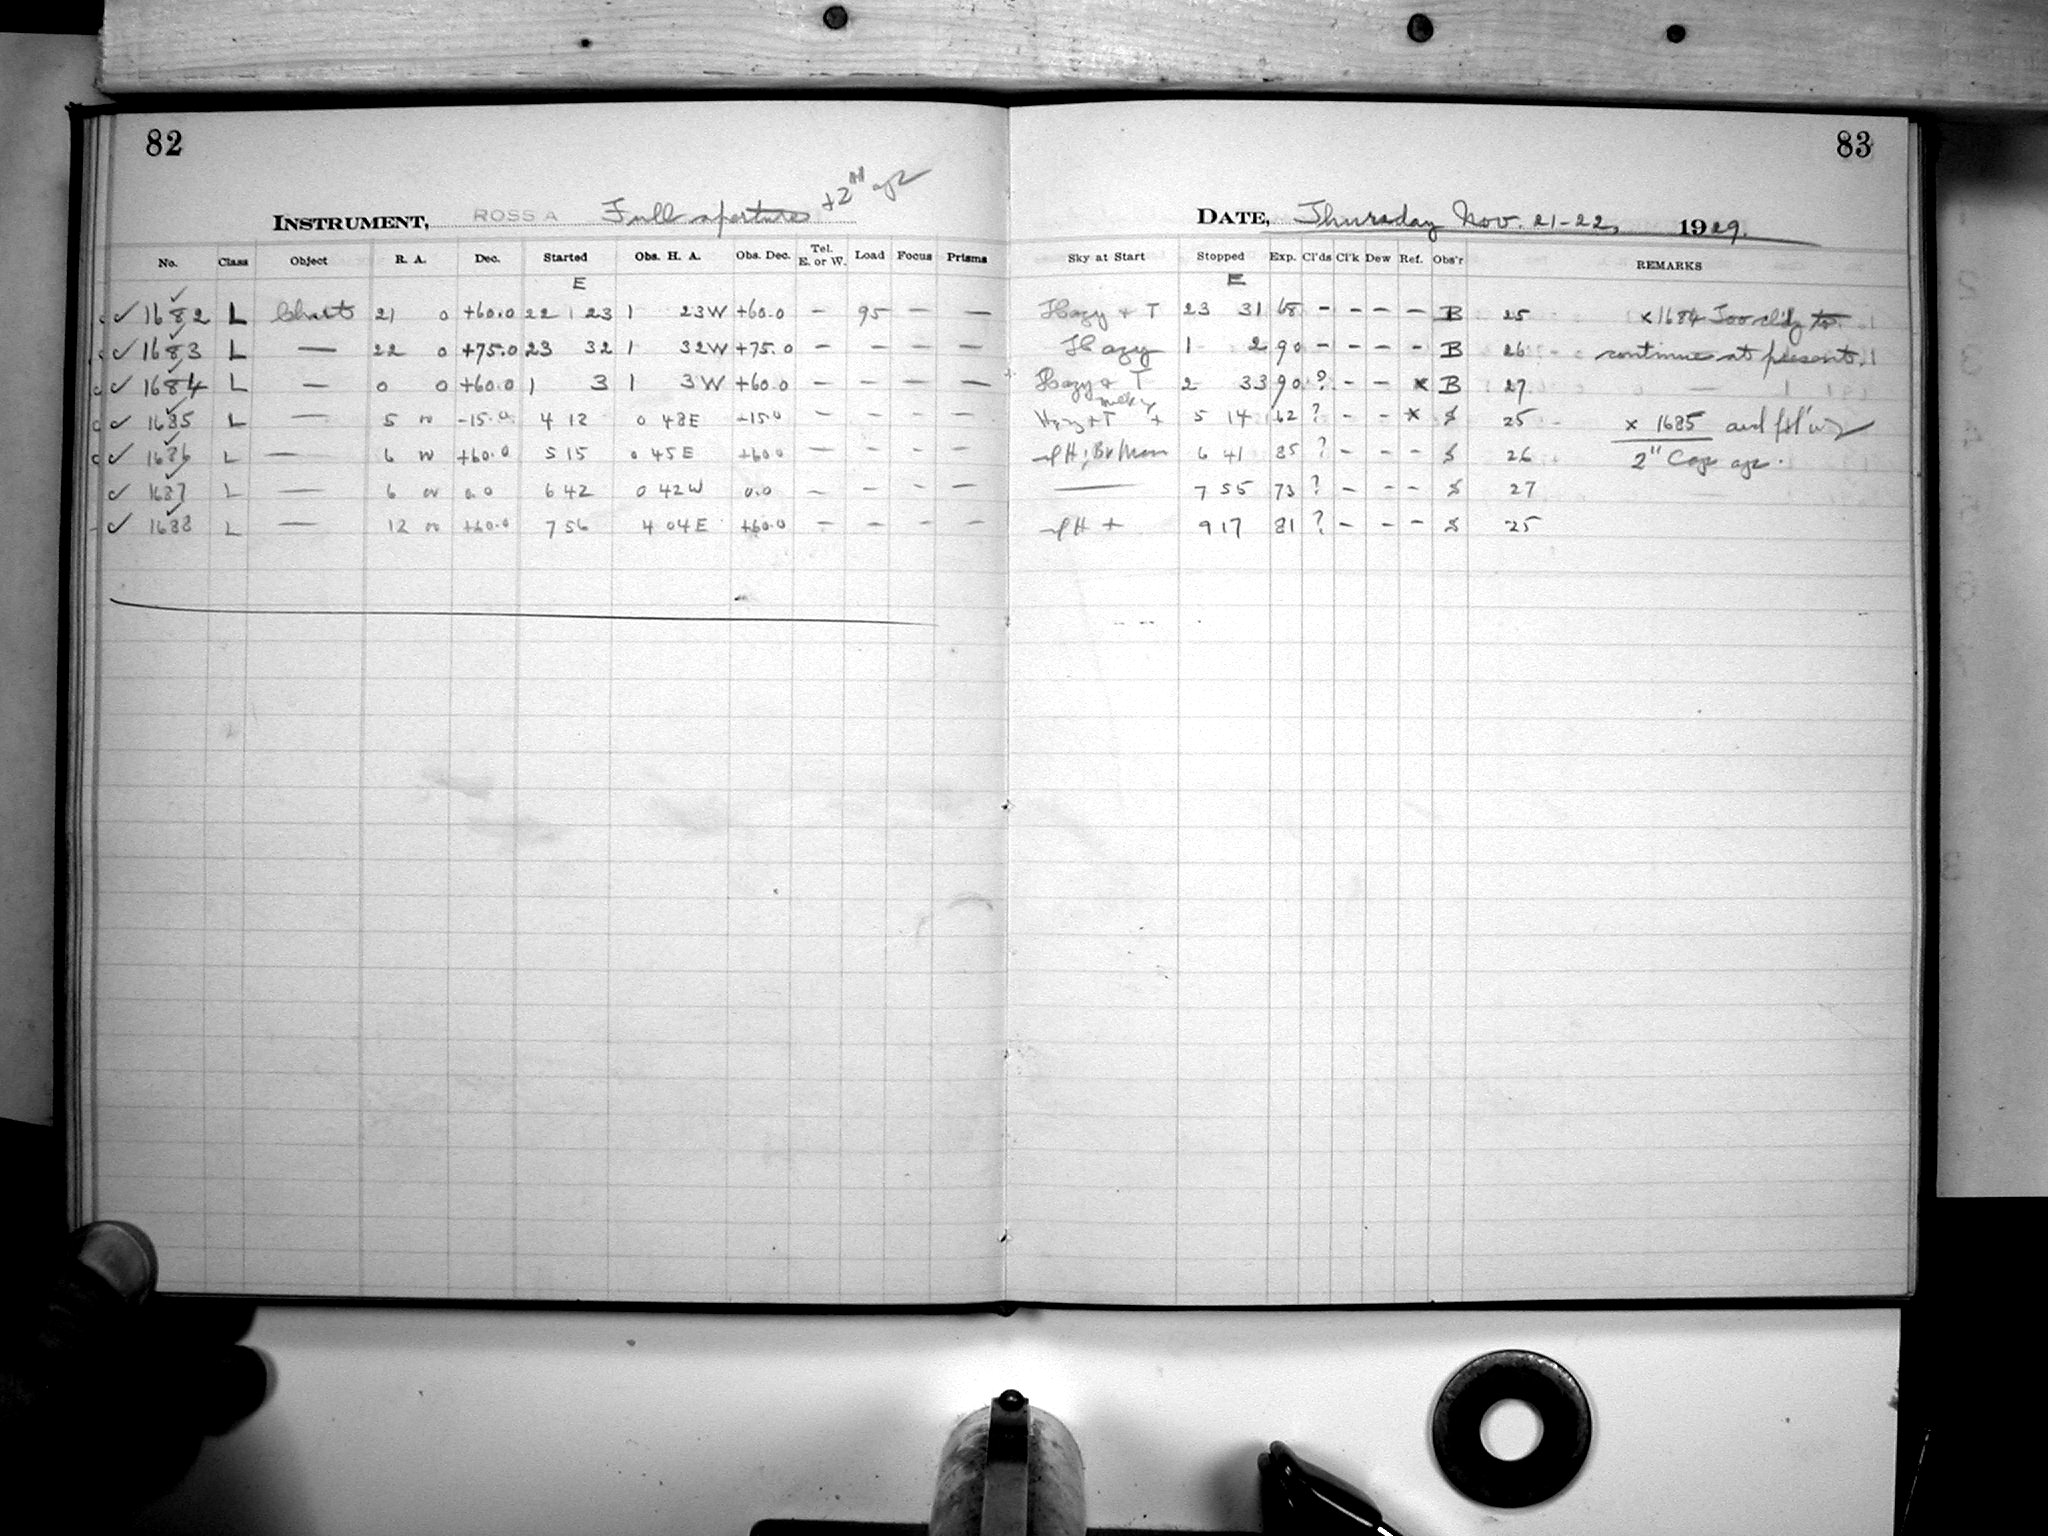 82
83
INSTRUMENT, ROSS A Full aperture +2" ap
DATE, Thursday Nov. 21-22, 1929.
No. Class Object R. A. Dec. Started Obs. H. A. Obs. Dec. Tel. E. or W. Load Focus Prisms Sky at Start Stopped Exp. Cl'ds Cl'k Dew Ref. Obs'r REMARKS
E E
✓ 1682 L Chart 21 0 +60.0 22 23 1 23W +60.0 — 95 — — Hazy + T 23 31 68 - - - - B 25 x 1684 Too cl'dy to
✓ 1683 L — 22 0 +75.0 23 32 1 32W +75.0 — — — — Hazy 1 2 90 - - - - B 26 continue at present.
✓ 1684 L — 0 0 +60.0 1 3 1 3W +60.0 — — — — Hazy + T 2 33 90 ? - - x B 27
✓ 1685 L — 5 -15.0 4 12 0 48E -15.0 — — — — Hzy + T + 5 14 62 ? - - x S 25 x 1685 and fol'wg
✓ 1686 L — 6 +60.0 5 15 0 45E +60.0 — — — — H; Br Moon 6 41 85 ? - - - S 26 2" Cap ap.
✓ 1687 L — 6 0.0 6 42 0 42W 0.0 — — — — — 7 55 73 ? - - - S 27
✓ 1688 L — 12 +60.0 7 56 4 04E +60.0 — — — — H + 9 17 81 ? - - - S 25